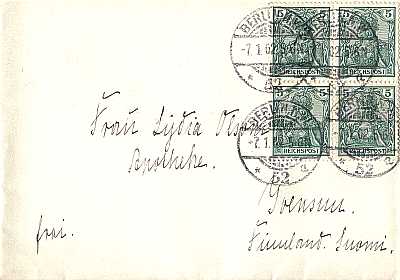 5 5
REICHSPOST REICHSPOST
BERLIN
-7.1.02
52
5 5
REICHSPOST REICHSPOST
BERLIN
-7.1.02
52
Frau Lydia
Apotheke.
Joensuu.
frei.
Finnland. Suomi.